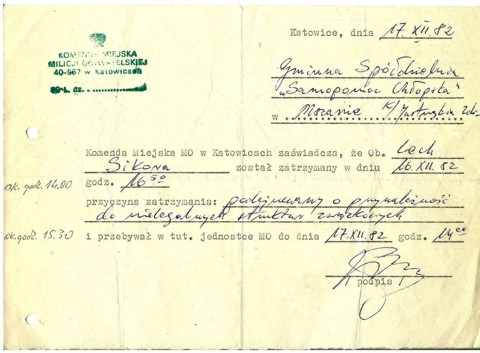 Katowice, dnia 17.XII.82
KOMENDA MIEJSKA
MILICJI OBYWATELSKIEJ
40-967 w Katowicach
Gminna Spółdzielnia
"Samopomoc Chłopska"
w Mszanie k/Jastrzębia
Komenda Miejska MO w Katowicach zaświadcza, że Ob. Lech
Sikora został zatrzymany w dniu 16.XII.82
ok. godz. 14.00
godz. 16 50
przyczyna zatrzymania: podejrzewany o przynależność
do nielegalnych struktur związkowych
ok. godz. 15.30
i przebywał w tut. jednostce MO do dnia 17.XII.82 godz. 14 00
/ podpis /